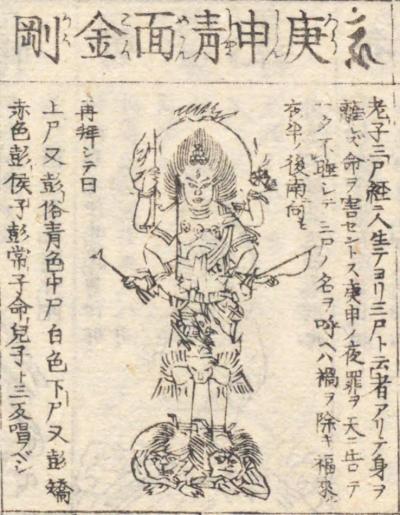 庚申青面金剛
老子三尸経ニ人生テヨリ三尸ト云者アリテ身ヲ
離レズ命ヲ害セントス庚申ノ夜罪ヲ天ニ
不睡シテ三尸ノ名ヲ呼ヘハ禍ヲ除キ福来
夜半ノ後南向
再拜シテ曰
上尸又彭俗青色中尸白色下尸又彭矯
赤色彭侯子彭常子命兒子ト三反唱ベシ